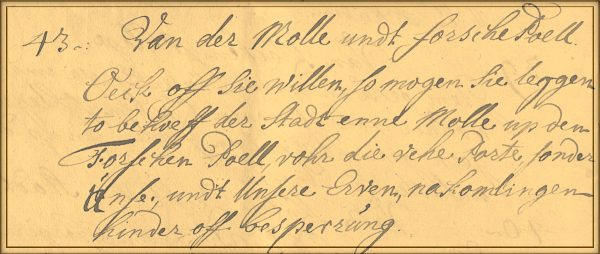 43.: Van der Molle undt forsche Poell.
Oeck off Sie willen, so mogen Sie leggen
to behoeff der Stadt enne Molle up dem
Forschen Poell, vohr die vehe Porte, sonder
Unse, undt Unsere Erven, nakomlingen
hinder off besperrüng.